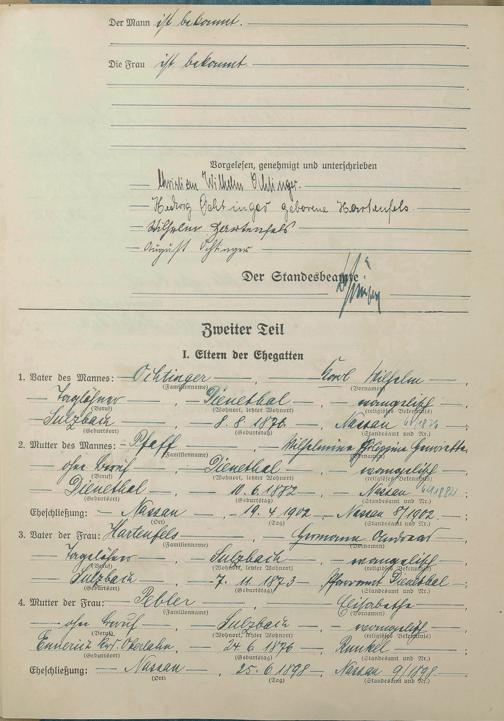 Der Mann ist bekannt.
Die Frau ist bekannt
Vorgelesen, genehmigt und unterschrieben
Christian Wilhelm Ochtinger.
Hedwig Ochtinger geborene Hartenfels
Wilhelm Hartenfels
August Ochtinger
Der Standesbeamte
Zweiter Teil
I. Eltern der Ehegatten
1. Vater des Mannes: Ochtinger, Karl Wilhelm,
(Familienname) (Vornamen)
Taglöhner, Dienethal, evangelisch
(Beruf) (Wohnort, letzter Wohnort) (religiöses Bekenntnis)
Sulzbach, 8.8 1876, Nassau
(Geburtsort) (Geburtstag) (Standesamt und Nr.)
2. Mutter des Mannes: Pfaff, Wilhelmine Henriette
(Familienname) (Vornamen)
ohne Beruf, Dienethal, evangelisch
(Beruf) (Wohnort, letzter Wohnort) (religiöses Bekenntnis)
Dienethal, 10.6.1882, Nassau
(Geburtsort) (Geburtstag) (Standesamt und Nr.)
Eheschließung: Nassau, 19.4 1902, Nassau 8/1902;
(Ort) (Tag) (Standesamt und Nr.)
3. Vater der Frau: Hartenfels, Hermann
(Familienname) (Vornamen)
Tagelöhner, Sulzbach, evangelisch
(Beruf) (Wohnort, letzter Wohnort) (religiöses Bekenntnis)
Sulzbach, 7. 11 1873, Pfarramt Dienethal;
(Geburtsort) (Geburtstag) (Standesamt und Nr.)
4. Mutter der Frau: Elisabethe
(Familienname) (Vornamen)
ohne Beruf, Sulzbach, evangelisch
(Beruf) (Wohnort, letzter Wohnort) (religiöses Bekenntnis)
Ennerich Krs. Oberlahn, 24 6 1876, Runkel
(Geburtsort) (Geburtstag) (Standesamt und Nr.)
Eheschließung: Nassau, 25.6 1898, Nassau 9/1898.
(Ort) (Tag) (Standesamt und Nr.)